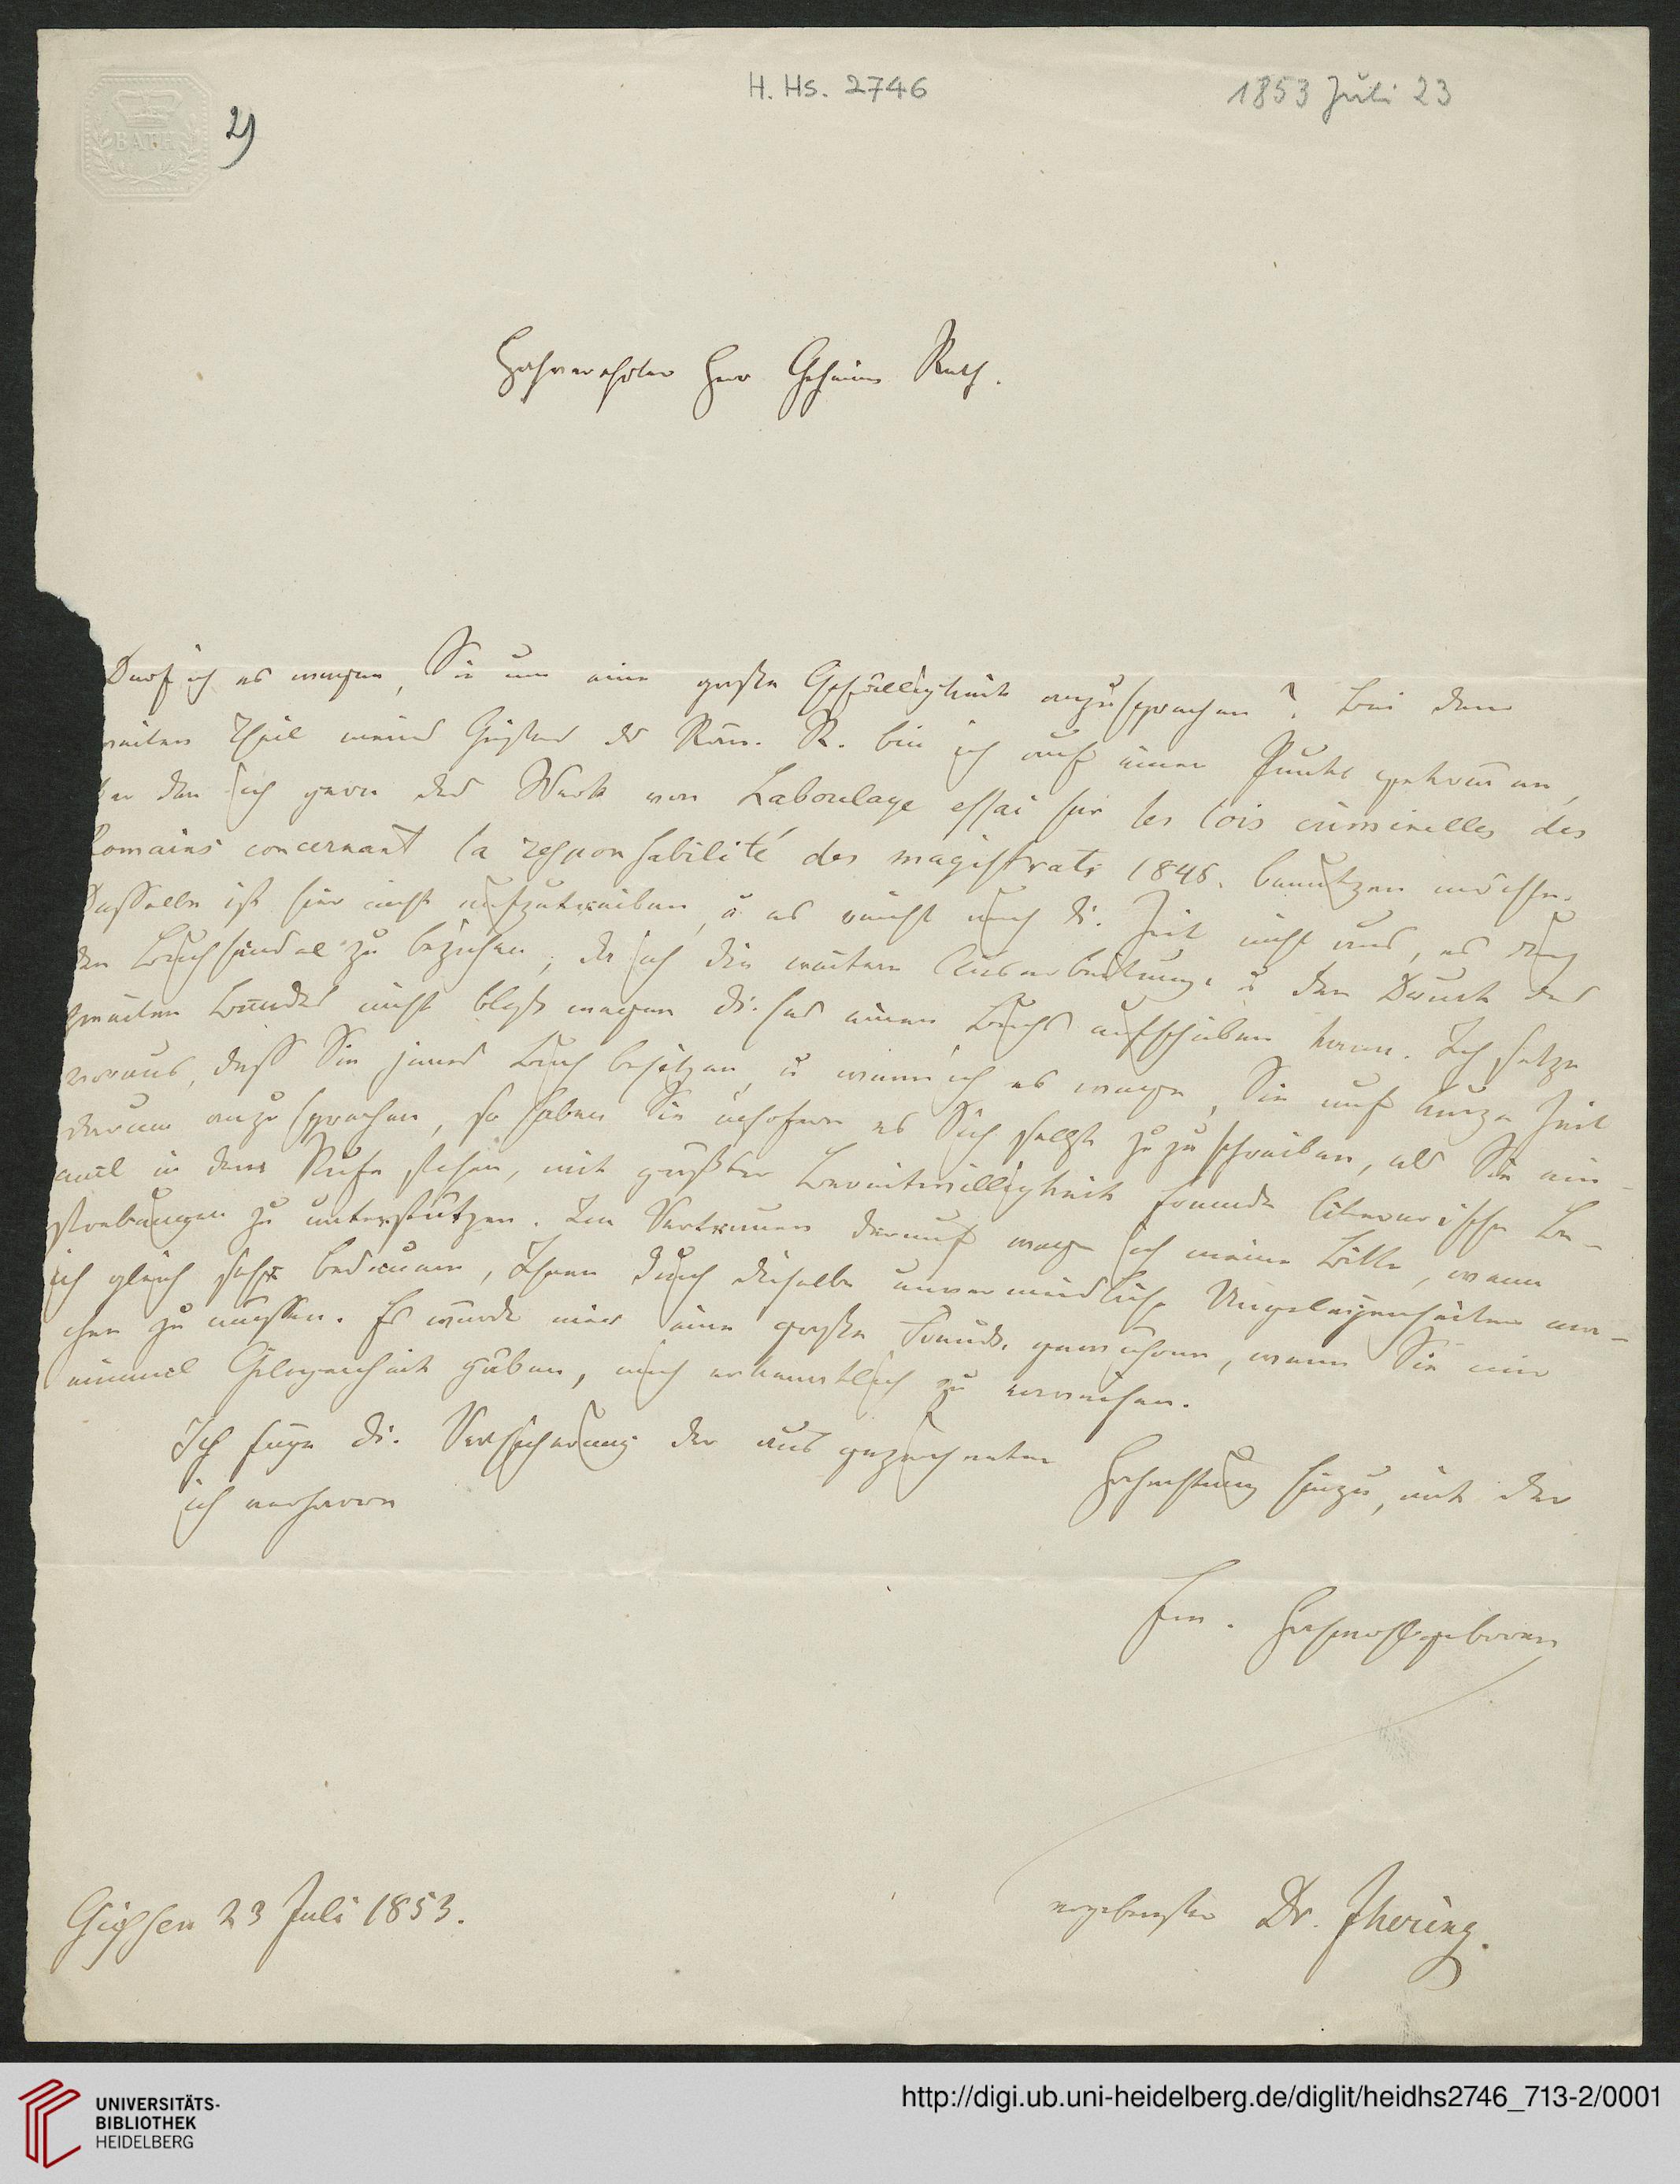 H. Hs. 2746
1853 Juli 23
BATH
2)
Hochverehrter Herr Geheime Rath.
Darf ich es wagen, Sie um eine große Gefälligkeit anzusprechen? Bei dem
weiten Theil meines Geistes des Röm. R. bin ich auf einen Punkt gekommen,
bei dem ich gern das Werk von Laboulaye essai sur les lois criminelles des
Romains concernant la responsabilité des magistrats 1845. benutzen möchte.
Dasselbe ist hier nicht aufzutreiben, u es reicht auch die Zeit nicht aus, es durch
den Buchhandel zu beziehen, da ich die weitere Ausarbeitung u den Druck des
zweiten Bandes nicht bloß wegen dieses einen Buchs aufschieben kann. Ich setze
voraus, daß Sie jenes Buch besitzen, u wenn ich es wage, Sie auf kurze Zeit
darum anzusprechen, so haben Sie insofern es Sich selbst zuzuschreiben, als Sie ein-
mal in dem Rufe stehen, mit größter Bereitwilligkeit fremde literarische Be-
strebungen zu unterstützen. Im Vertrauen darauf wage ich meine Bitte, wenn
ich gleich sehr bedauere, Ihnen durch dieselbe unvermeidliche Ungelegenheiten ma-
chen zu müssen. Es würde mir eine große Freude gewähren, wenn Sie mir
einmal Gelegenheit gäben, mich erkenntlich zu erweisen.
Ich füge die Versicherung der ausgezeichneten Hochachtung hinzu, mit der
ich verharre
Ew. Hochwohlgeboren
Gießen 23 Juli 1853.
ergebenster Dr. Jhering.
UNIVERSITÄTS-
BIBLIOTHEK
HEIDELBERG
http://digi.ub.uni-heidelberg.de/diglit/heidhs2746_713-2/0001